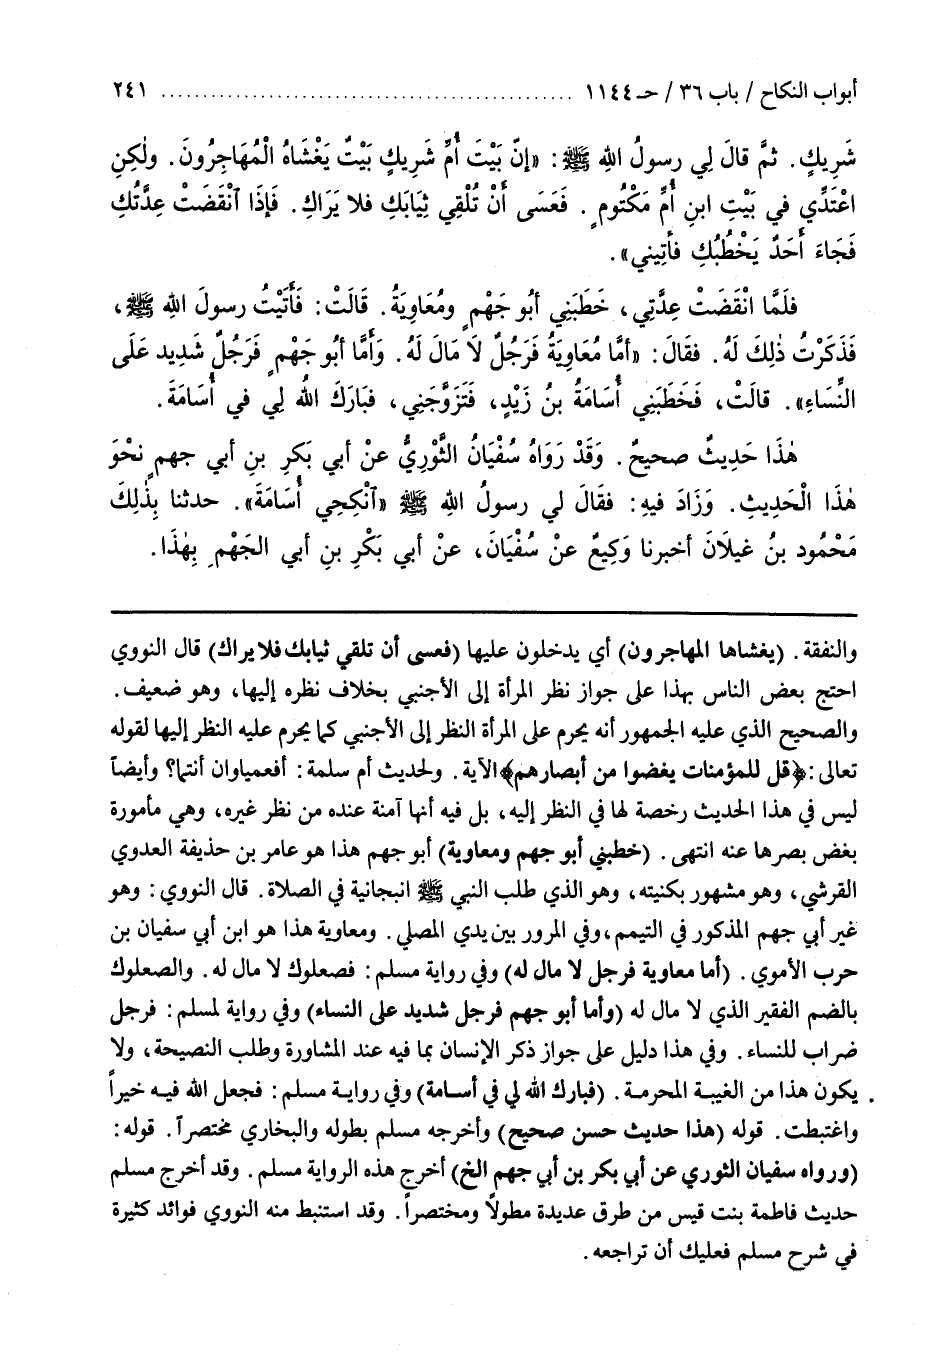 أبواب النكاح / باب ٣٦ / حـ ١١٤٤ ................................................ ٢٤١
شَرِيكٍ. ثمَّ قالَ لِي رسولُ اللهِ ﷺ: «إنّ بَيْتَ أُمِّ شَرِيكٍ بَيْتٌ يَغْشَاهُ الْمُهَاجِرُونَ. ولٰكِنِ
اعْتَدِّي في بَيْتِ ابنِ أُمِّ مَكْتُومٍ. فَعَسَى أَنْ تُلْقِي ثِيَابَكِ فلا يَرَاكِ. فَإِذَا ٱنْقَضَتْ عِدَّتُكِ
فَجَاءَ أَحَدٌ يَخْطُبُكِ فأتِيني».
فلَمَّا انْقَضَتْ عِدَّتِي، خَطَبَنِي أبُو جَهْمٍ ومُعَاوِيَةُ. قَالَتْ: فَأَتَيْتُ رسولَ اللهِ ﷺ،
فَذَكَرْتُ ذٰلِكَ لَهُ. فقَالَ: «أمَّا مُعَاوِيَةُ فَرَجُلٌ لَا مَالَ لَهُ. وَأَمَّا أبُو جَهْمٍ فَرَجُلٌ شَدِيد عَلَى
النِّسَاءِ». قالَتْ، فَخَطَبَنِي أُسَامَةُ بنُ زَيْدٍ، فَتَزَوَّجَنِي، فبَارَكَ اللهُ لِي في أُسَامَةَ.
هٰذَا حَدِيثٌ صحيحٌ. وَقَدْ رَوَاهُ سُفْيَانُ الثَّوْرِيُّ عنْ أبي بَكرِ بنِ أبي جهمٍ نحْوَ
هٰذَا الْحَدِيثِ. وَزَادَ فيهِ: فقَالَ لي رسولُ اللهِ ﷺ «ٱنْكِحِي أُسَامَةَ». حدثنا بِذٰلِكَ
مَحْمُود بنُ غيلَانَ أخبرنا وَكِيعٌ عنْ سُفْيَانَ، عنْ أبي بَكْرِ بنِ أبي الجَهْمِ بِهٰذَا.
والنفقة. (يغشاها المهاجرون) أي يدخلون عليها (فعسى أن تلقي ثيابك فلا يراك) قال النووي
احتج بعض الناس بهذا على جواز نظر المرأة إلى الأجنبي بخلاف نظره إليها، وهو ضعيف.
والصحيح الذي عليه الجمهور أنه يحرم على المرأة النظر إلى الأجنبي كما يحرم عليه النظر إليها لقوله
تعالى: ﴿قل للمؤمنات يغضوا من أبصارهم﴾ الآية. ولحديث أم سلمة: أفعمياوان أنتما؟ وأيضاً
ليس في هذا الحديث رخصة لها في النظر إليه، بل فيه أنها آمنة عنده من نظر غيره، وهي مأمورة
بغض بصرها عنه انتهى. (خطبني أبو جهم ومعاوية) أبو جهم هذا هو عامر بن حذيفة العدوي
القرشي، وهو مشهور بكنيته، وهو الذي طلب النبي ﷺ انبجانية في الصلاة. قال النووي: وهو
غير أبي جهم المذكور في التيمم، وفي المرور بين يدي المصلي. ومعاوية هذا هو ابن أبي سفيان بن
حرب الأموي. (أما معاوية فرجل لا مال له) وفي رواية مسلم: فصعلوك لا مال له. والصعلوك
بالضم الفقير الذي لا مال له (وأما أبو جهم فرجل شديد على النساء) وفي رواية لمسلم: فرجل
ضراب للنساء. وفي هذا دليل على جواز ذكر الإنسان بما فيه عند المشاورة وطلب النصيحة، ولا
يكون هذا من الغيبة المحرمة. (فبارك الله لي في أسامة) وفي رواية مسلم: فجعل الله فيه خيراً
واغتبطت. قوله (هذا حديث حسن صحيح) وأخرجه مسلم بطوله والبخاري مختصراً. قوله:
(ورواه سفيان الثوري عن أبي بكر بن أبي جهم الخ) أخرج هذه الرواية مسلم. وقد أخرج مسلم
حديث فاطمة بنت قيس من طرق عديدة مطولاً ومختصراً. وقد استنبط منه النووي فوائد كثيرة
في شرح مسلم فعليك أن تراجعه.